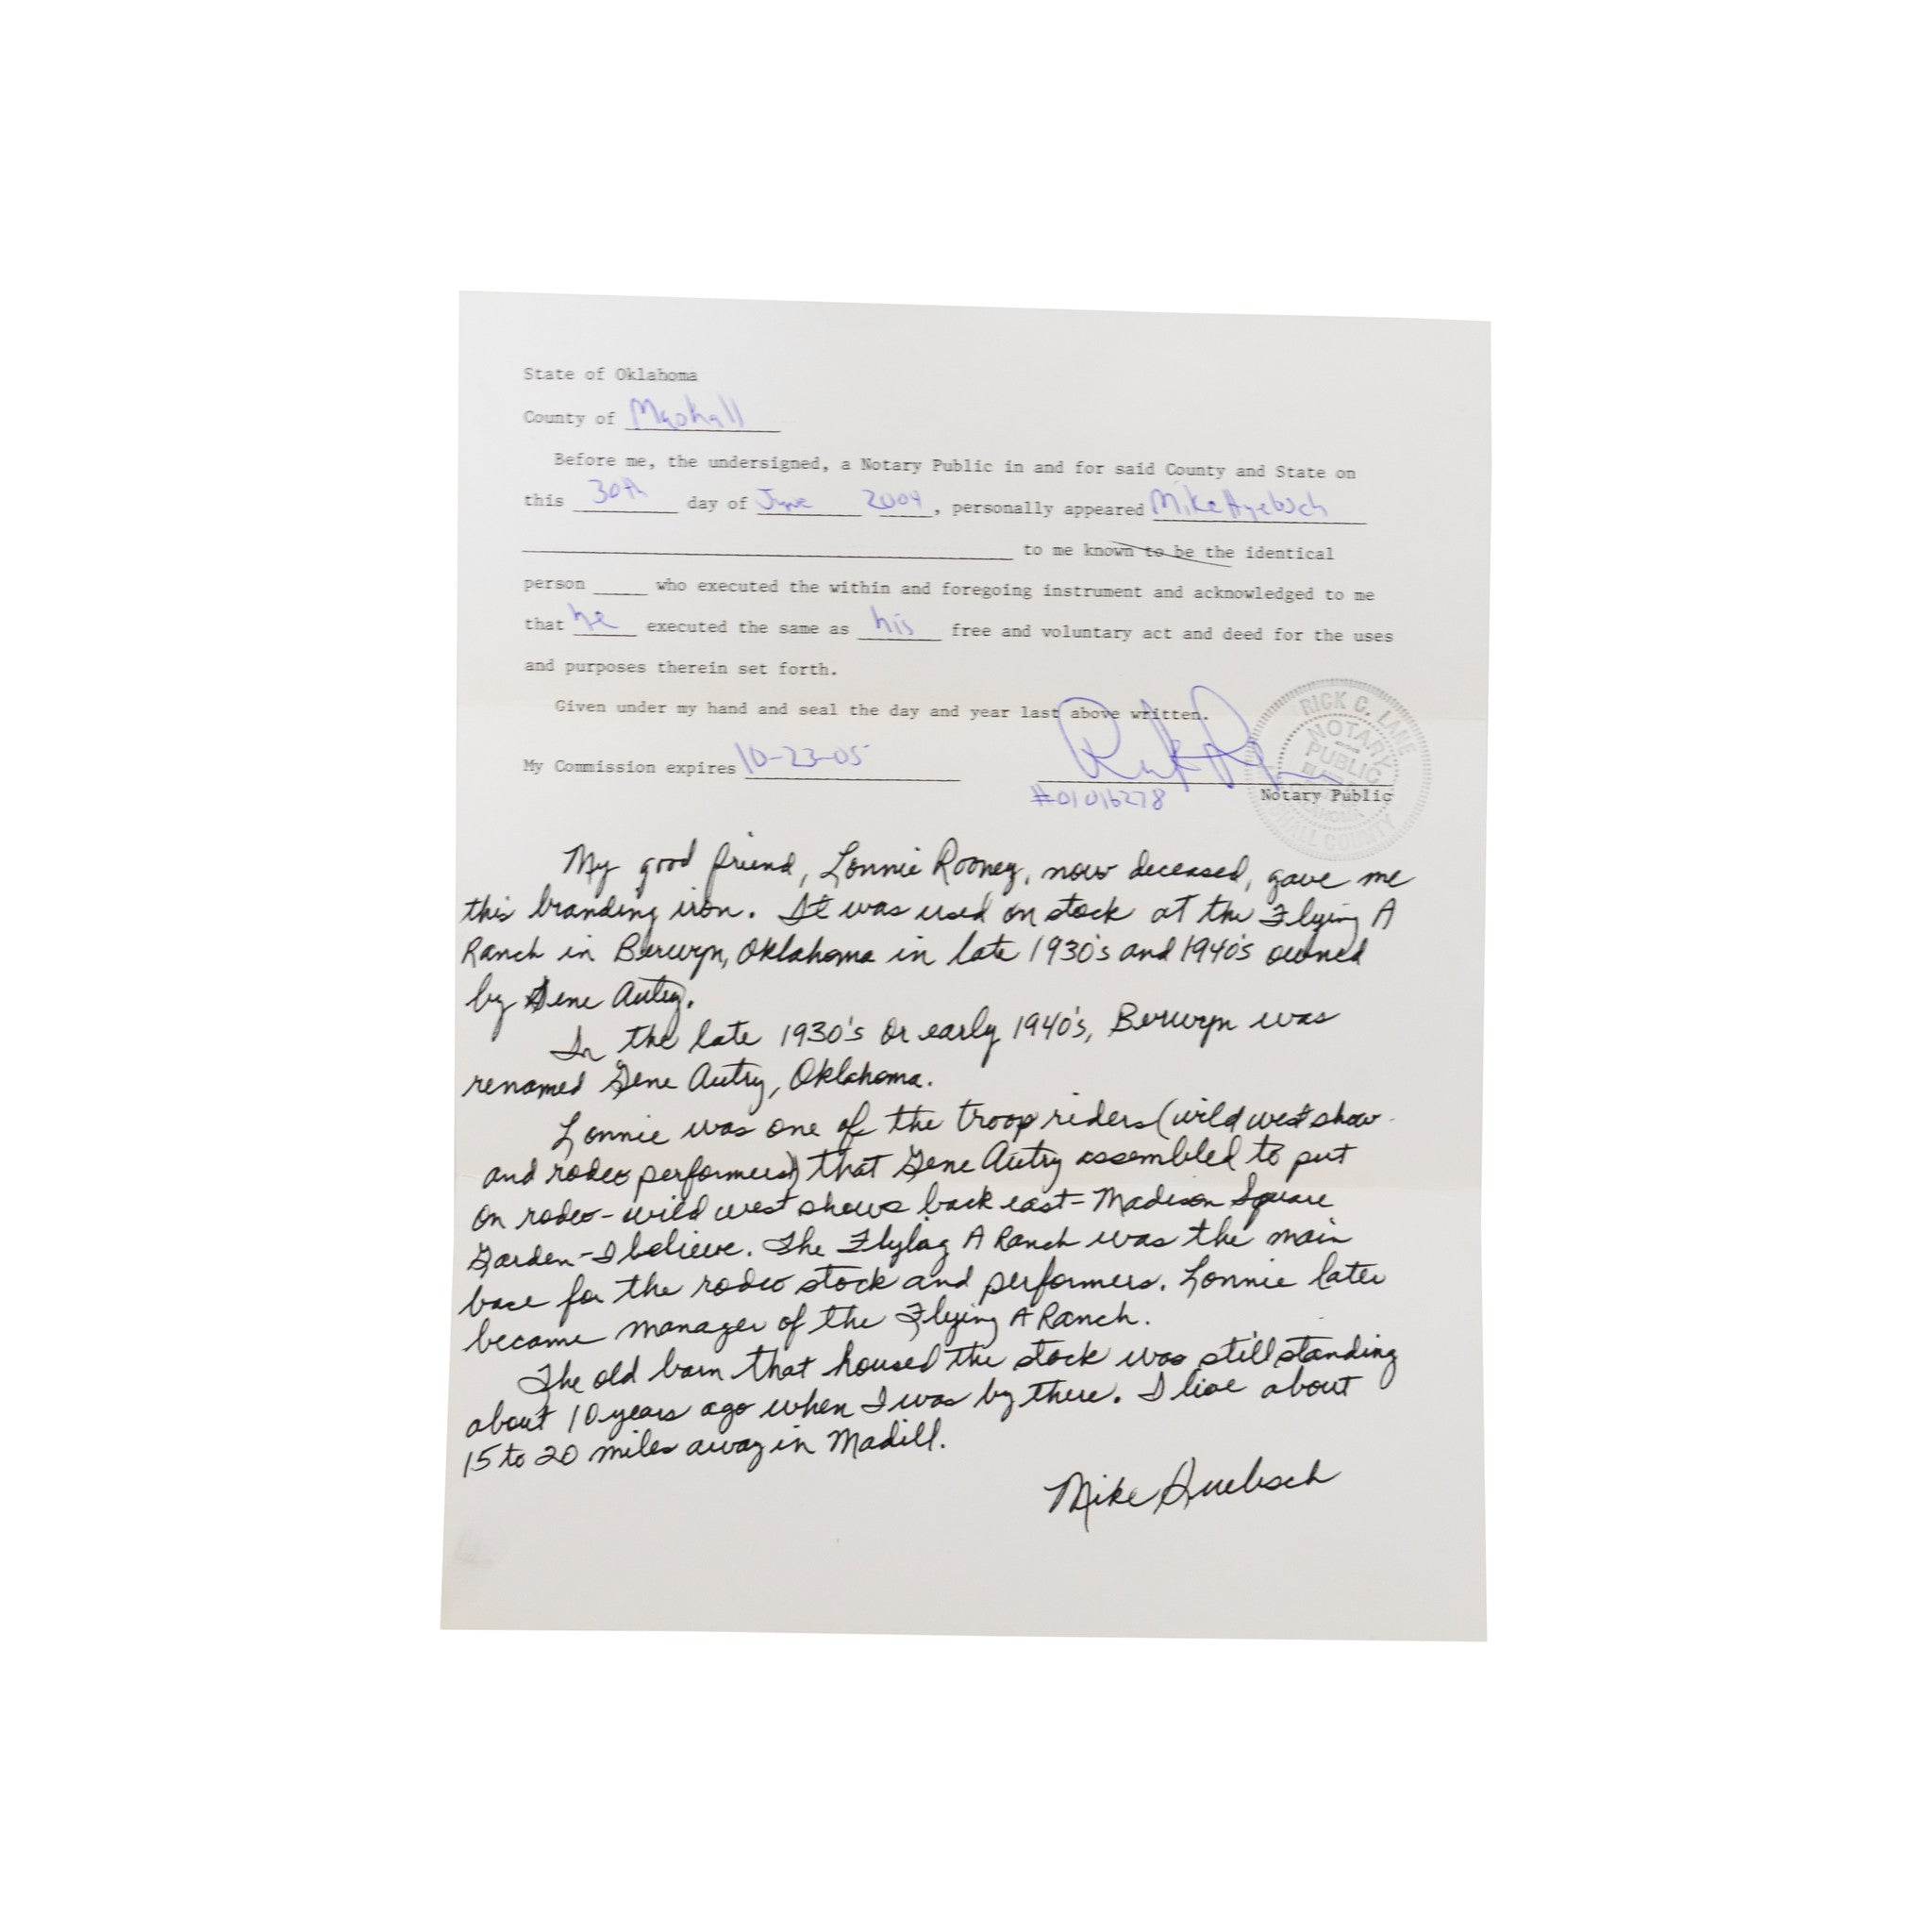 State of Oklahoma
County of Marshall
Before me, the undersigned, a Notary Public in and for said County and State on
this 30th day of June 2004, personally appeared Mike Huebsch
to me known to be the identical
person who executed the within and foregoing instrument and acknowledged to me
that he executed the same as his free and voluntary act and deed for the uses
and purposes therein set forth.
Given under my hand and seal the day and year last above written.
My Commission expires 10-23-05
#01016278 Notary Public
RICK C. LANE
NOTARY
PUBLIC
COUNTY
My good friend, Lonnie Rooney, now deceased, gave me
this branding iron. It was used on stock at the Flying A
Ranch in Berwyn, Oklahoma in late 1930's and 1940's owned
by Gene Autry.
In the late 1930's or early 1940's, Berwyn was
renamed Gene Autry, Oklahoma.
Lonnie was one of the troop riders (wild west show
and rodeo performers) that Gene Autry assembled to put
on rodeo-wild west shows back east-Madison Square
Garden-I believe. The Flying A Ranch was the main
base for the rodeo stock and performers. Lonnie later
became manager of the Flying A Ranch.
The old barn that housed the stock was still standing
about 10 years ago when I was by there. I live about
15 to 20 miles away in Madill.
Mike Huebsch